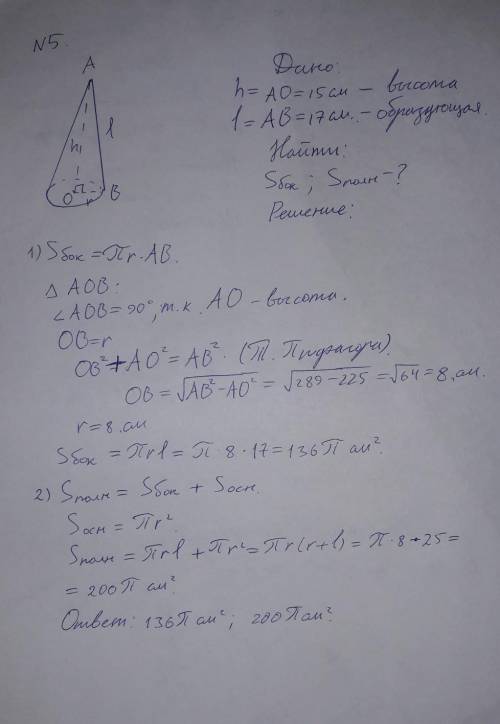 N5.
A
h
l
O
r
B
Дано:
h = AO = 15 см – высота
l = AB = 17 см. – образующая.
Найти:
Sбок ; Sполн – ?
Решение:
1) Sбок = πr · AB.
△ AOB:
∠AOB = 90°, т.к. AO – высота.
OB = r
OB² + AO² = AB². (Т. Пифагора).
OB = √AB² – AO² = √289 – 225 = √64 = 8 см.
r = 8 см
Sбок = πrl = π · 8 · 17 = 136π см².
2) Sполн = Sбок + Sосн.
Sосн = πr².
Sполн = πrl + πr² = πr(r + l) = π · 8 · 25 =
= 200π см².
Ответ: 136π см² ; 200π см².